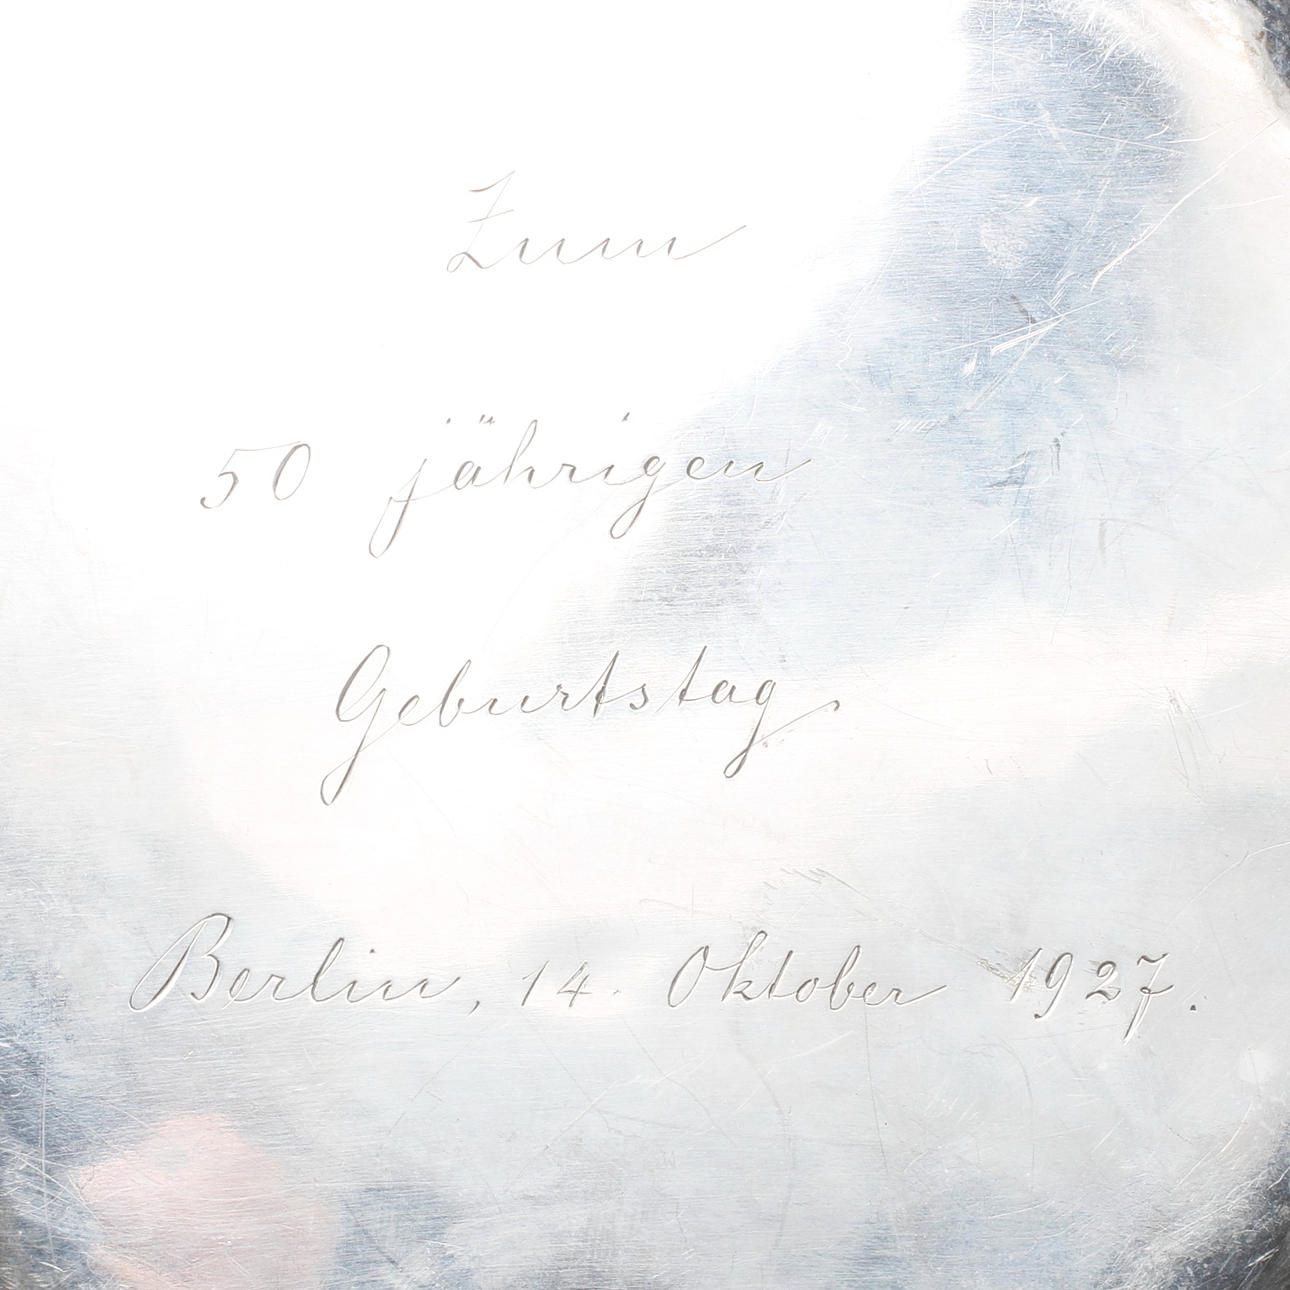 Zum
50 jährigen
Geburtstag.
Berlin, 14. Oktober 1927.